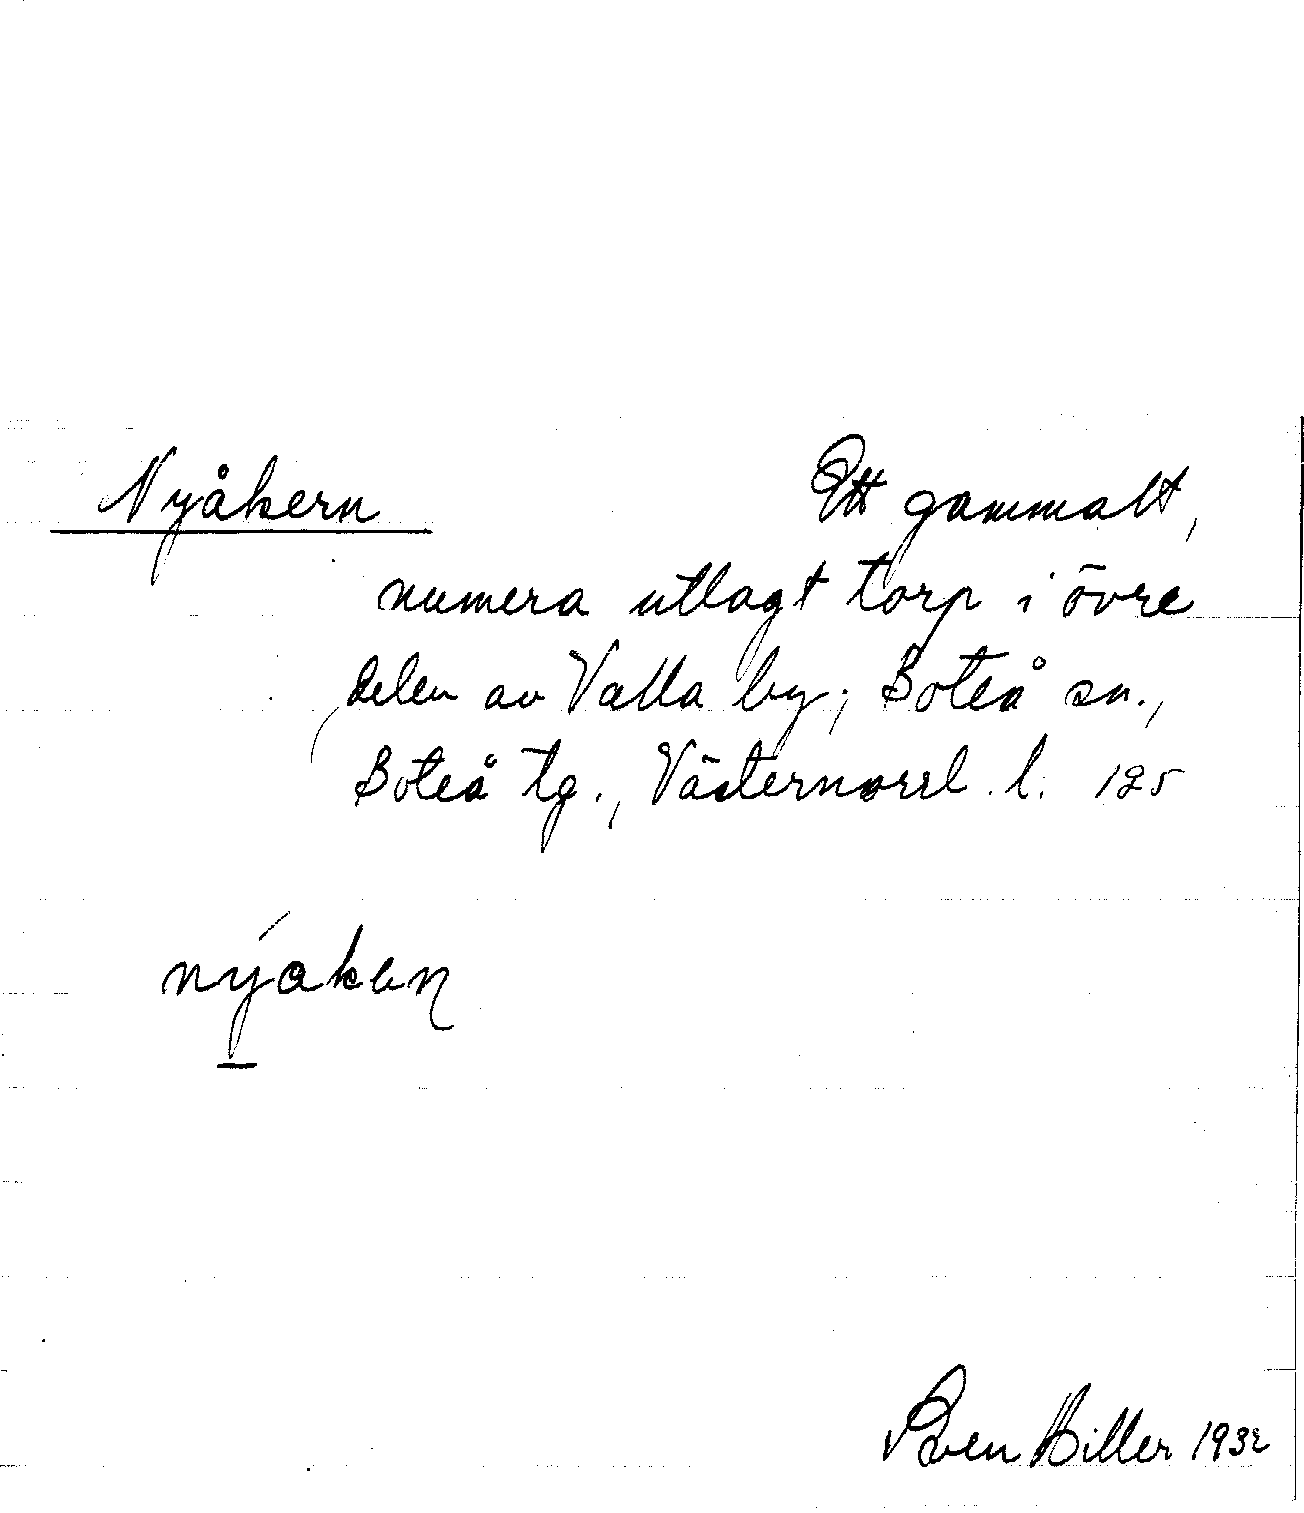 Nyåkern Ett gammalt,
numera utlagt torp i övre
delen av Valla by, Boteå sn.,
Boteå tg., Västernorrl. l. 125
nýakən
Sven Hiller 1932